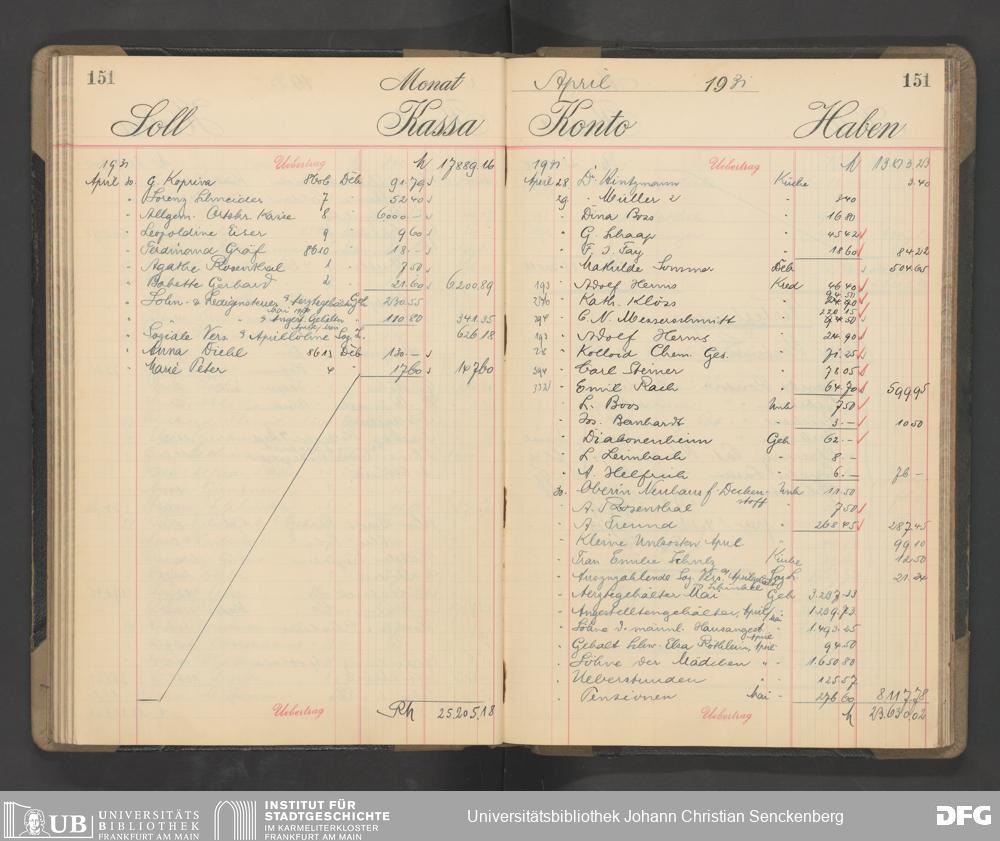 151
Monat
Soll
Kassa
1931
Uebertrag
17889.16
April 30. G. Kopriva 8606 Deb 91.79
Lorenz Schneider 7 52.40
Allgem. Ortskr. Kasse 8 6000.—
Leopoldine Eiser 9 9.60
Ferdinand Gräf 8610 18.—
Agathe Rosenthal 1 7.50
Babette Gerhard 2 21.60 6200.89
Lohn- & Ledigensteuer Geh 230.55
110.80 341.35
Soziale Vers. Aprillöhne Soz. L. 626.18
Anna Diehl 8613 Deb 130.—
Marie Peter 4 17.60 147.60
Uebertrag
RM 25205.18
April 1931
151
Konto
Haben
1931
Uebertrag
13073.23
April 28. Dr. Mintzmann Küche 3.40
29. Müller 2 3.40
Dina Boss 16.80
G. Schaap 45.42
F. J. Fay 18.60 84.22
Mathilde Sommer Deb 504.65
193 Adolf Herms Kred 46.40
270 Kath. Klöss
394 C. N. Messerschmitt
193 Adolf Herms 24.90
28 Kolloid Chem. Ges. 71.25
394 Carl Sterner 78.05
332 Emil Rach 64.70 599.95
L. Boos Unk 7.50
Jos. Bernhardt 3.— 10.50
Diakonenheim Geh 62.—
L. Leimbach 8.—
A. Helfrich 6.— 76.—
30. Oberin Neuhaus f. Decken- Unk 11.50
stoff
A. Rosenthal 7.50
A. Freund 268.45 287.45
Kleine Unkosten April 99.10
Frau Emilie Schulz Küche 12.50
Auszuzahlende Soz. Vers. Soz L. 21.24
Aerztegehälter Mai Geh 3.207.33
Angestelltengehälter, April/Mai 1.209.73
Löhne d. männl. Hausangest. April 1.493.45
Gehalt Schw. Elsa April 94.50
Löhne der Mädchen 1.650.80
Ueberstunden 125.57
Pensionen Mai 276.60 8.117.78
Uebertrag
23.630.02
UB UNIVERSITÄTS
BIBLIOTHEK
FRANKFURT AM MAIN
INSTITUT FÜR
STADTGESCHICHTE
IM KARMELITERKLOSTER
FRANKFURT AM MAIN
Universitätsbibliothek Johann Christian Senckenberg
DFG